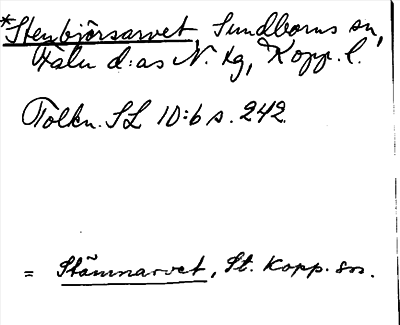 *Stenbjörsarvet, Sundborns sn,
Falu d:as N. tg, Kopp. l.
Tolkn. SL 10:6 s. 242.
= Stämnarvet, St. Kopp. sn.